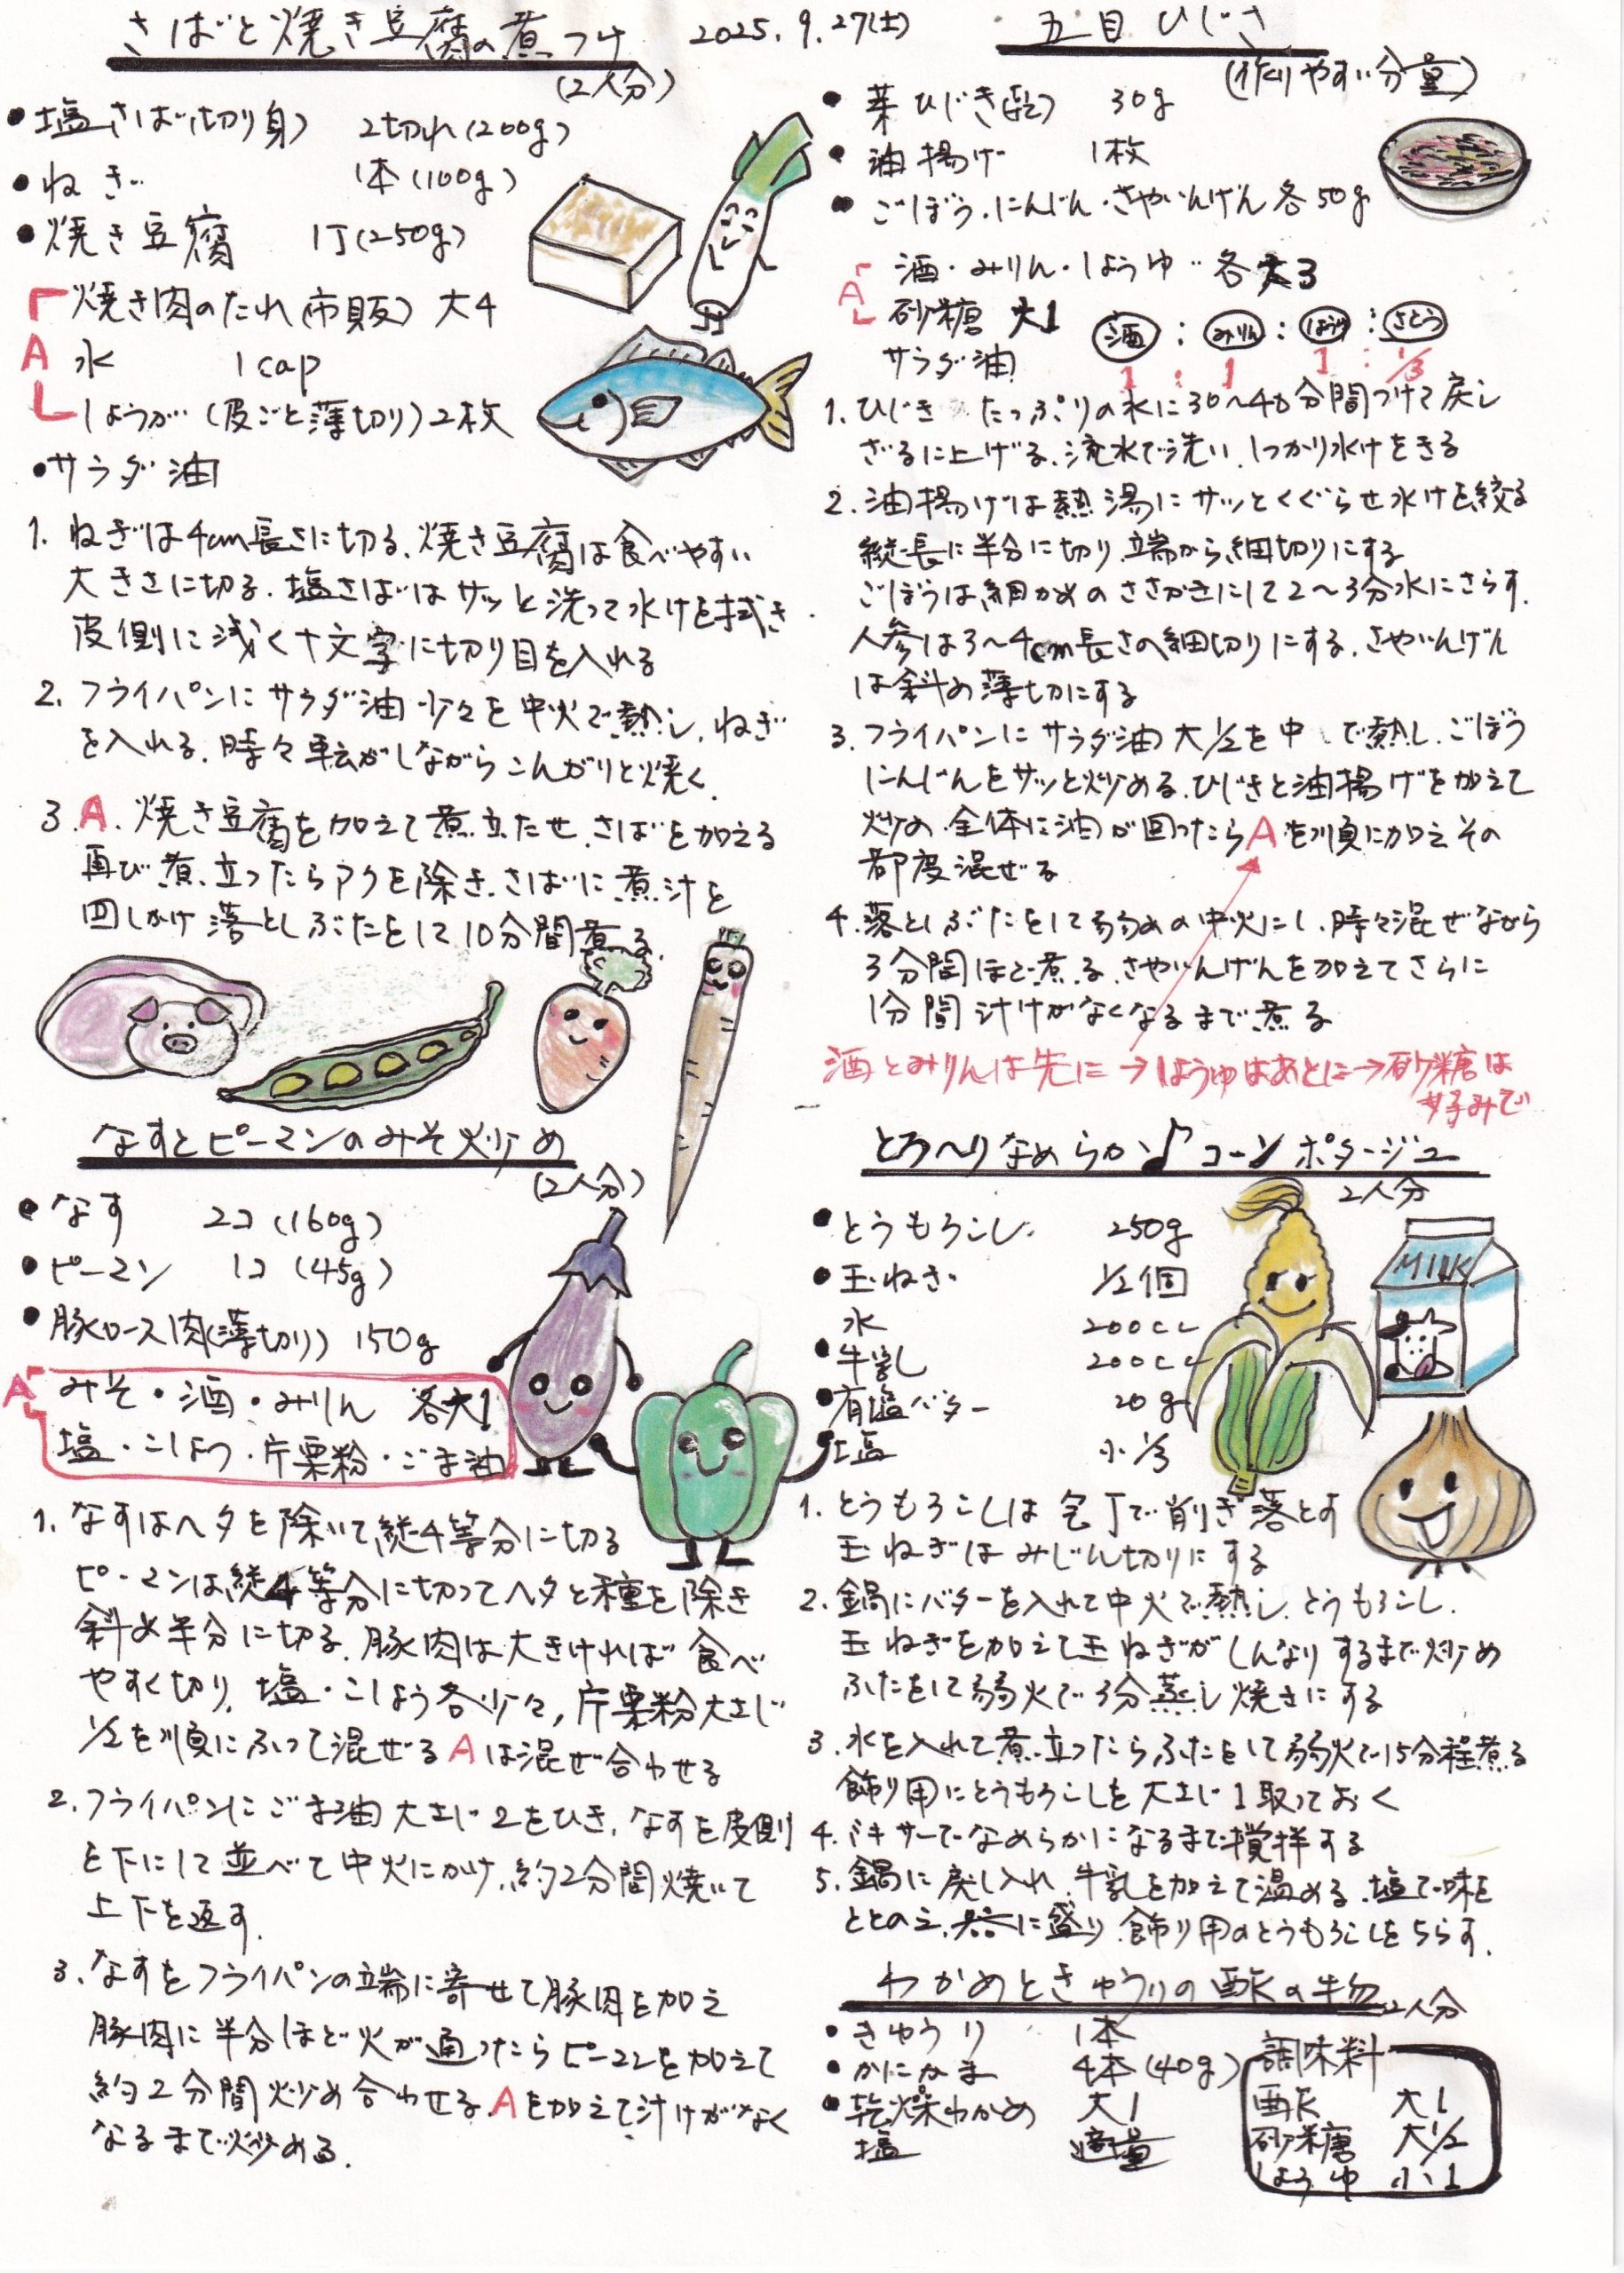 さばと焼き豆腐の煮つけ
2025.9.27(土)
(2人分)
●塩さば(切り身) 2切れ(200g)
●ねぎ 1本(100g)
●焼き豆腐 1丁(250g)
A
焼き肉のたれ(市販) 大4
水 1cap
しょうが(皮ごと薄切り)2枚
●サラダ油
1. ねぎは4cm長さに切る、焼き豆腐は食べやすい
大きさに切る、塩さばはサッと洗って水けを拭き
皮側に浅く十文字に切り目を入れる
2. フライパンにサラダ油少々を中火で熱し、ねぎ
を入れる、時々転がしながらこんがりと焼く
3. A、焼き豆腐を加えて煮立たせ、さばを加える
再び煮立ったらアクを除き、さばに煮汁を
回しかけ落としぶたをして10分間煮る
なすとピーマンのみそ炒め
(2人分)
●なす 2コ(160g)
●ピーマン 1コ(45g)
●豚ロース肉(薄切り) 150g
A
みそ・酒・みりん 各大1
塩・こしょう・片栗粉・ごま油
1. なすはヘタを除いて縦4等分に切る
ピーマンは縦4等分に切ってヘタと種を除き
斜め半分に切る、豚肉は大きければ食べ
やすく切り、塩・こしょう各少々、片栗粉大さじ
1/2を順にふって混ぜるAは混ぜ合わせる
2. フライパンにごま油大さじ2をひき、なすを皮側
を下にして並べて中火にかけ、約2分間焼いて
上下を返す.
3. なすをフライパンの端に寄せて豚肉を加え
豚肉に半分ほど火が通ったらピーマンを加えて
約2分間炒め合わせる、Aを加えて汁けがなく
なるまで炒める.
五目ひじき
(作りやすい分量)
●芽ひじき(乾) 30g
●油揚げ 1枚
●ごぼう・にんじん・さやいんげん各50g
A
酒・みりん・しょうゆ 各大3
砂糖 大1
酒:みりん:しょうゆ:さとう
1:1:1:1/3
サラダ油
1. ひじき たっぷりの水に30～40分間つけて戻し
ざるに上げる、流水で洗い、しっかり水けをきる
2. 油揚げは熱湯にサッとくぐらせ水けを絞る
縦長に半分に切り、端から細切りにする
ごぼうは細かめのささがきにして2～3分水にさらす.
人参は3～4cm長さの細切りにする、さやいんげん
は斜め薄切にする
3. フライパンにサラダ油大1/2を中 で熱し、ごぼう
にんじんをサッと炒める、ひじきと油揚げを加えて
炒め、全体に油が回ったらAを順に加えその
都度混ぜる
4. 落としぶたをして弱めの中火にし、時々混ぜながら
3分間ほど煮る、さやいんげんを加えてさらに
1分間汁けがなくなるまで煮る
酒とみりんは先に→しょうゆはあとに→砂糖は
好みで
とろ～りなめらか♪コーンポタージュ
2人分
●とうもろこし 250g
●玉ねぎ 1/2個
水 200cc
●牛乳 200cc
●有塩バター 20g
塩 小1/3
MILK
1. とうもろこしは包丁で削ぎ落とす
玉ねぎはみじん切りにする
2. 鍋にバターを入れて中火で熱し、とうもろこし、
玉ねぎを加えて玉ねぎがしんなりするまで炒め
ふたをして弱火で3分蒸し焼きにする
3. 水を入れて煮立ったらふたをして弱火で15分程煮る
飾り用にとうもろこしを大さじ1取っておく
4. ミキサーでなめらかになるまで撹拌する
5. 鍋に戻し入れ、牛乳を加えて温める、塩で味を
ととのえ、器に盛り、飾り用のとうもろこしをちらす.
わかめときゅうりの酢の物
2人分
●きゅうり 1本
●かにかま 4本(40g)
●乾燥わかめ 大1
塩 適量
調味料
酢 大1
砂糖 大1/2
しょうゆ 小1